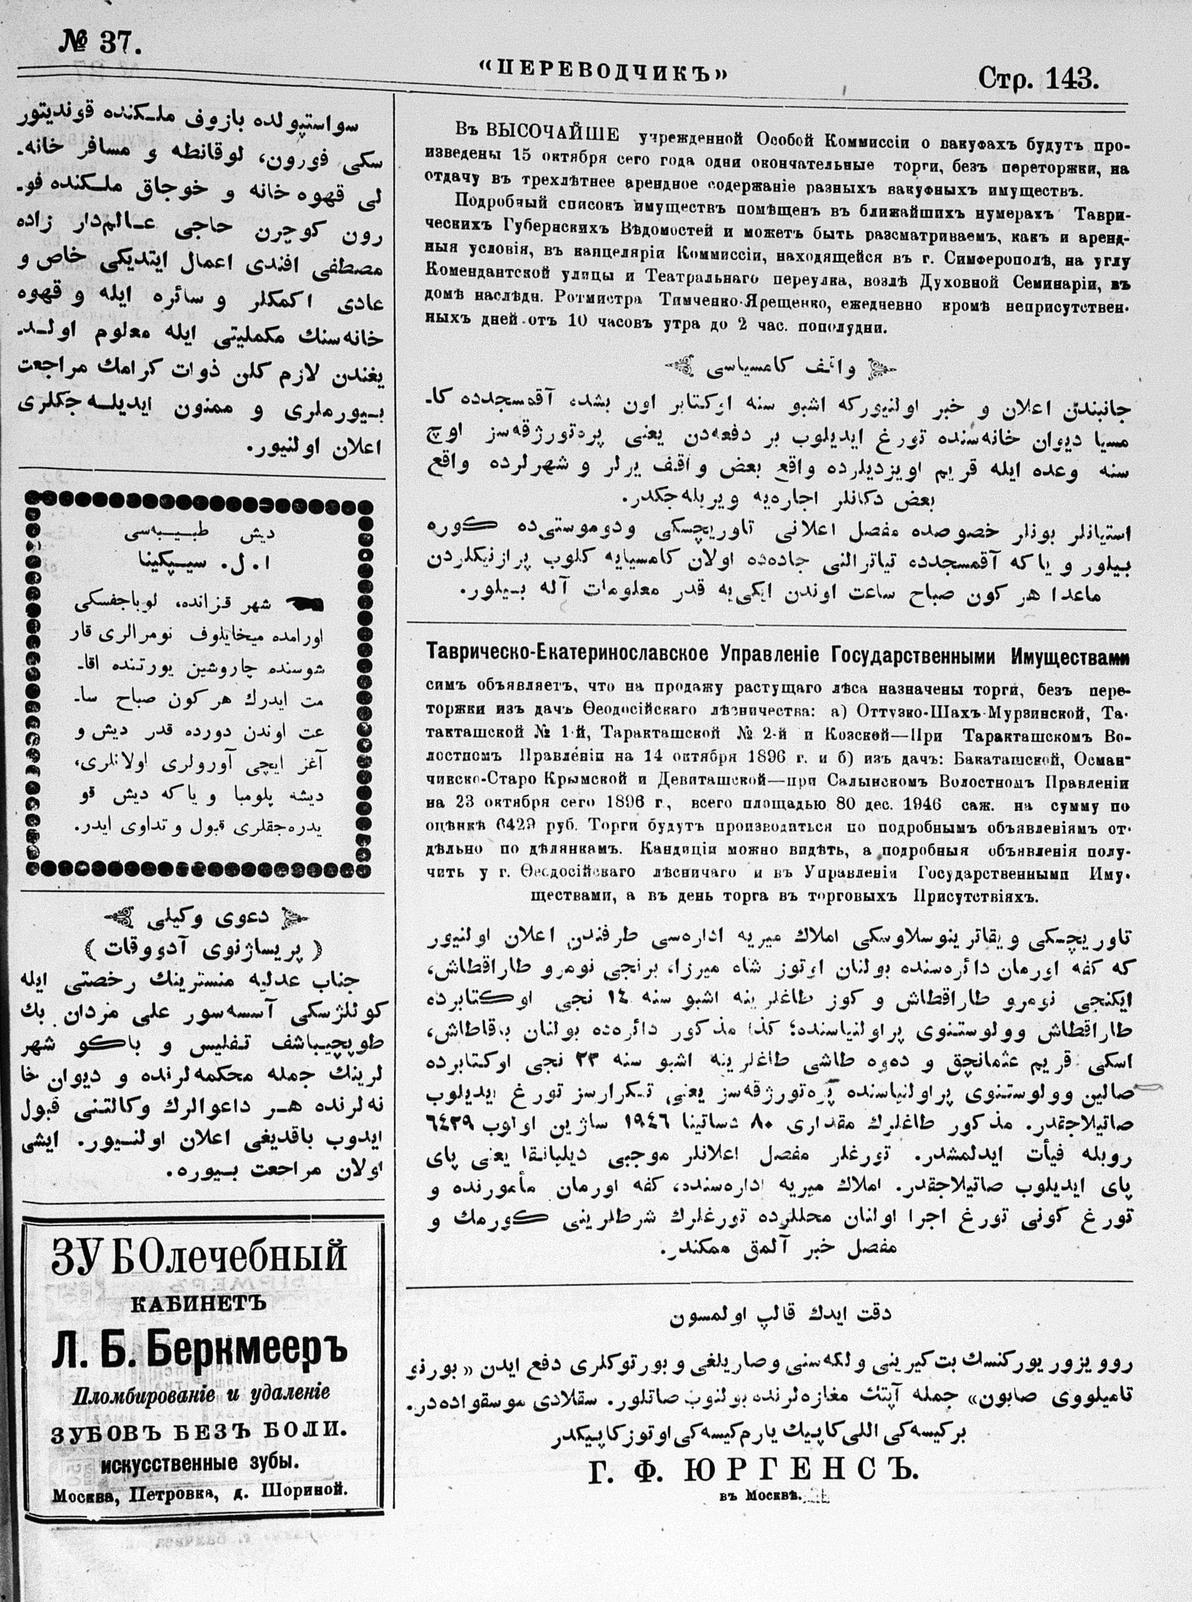 № 37.
«ПЕРЕВОДЧИКЪ»
Стр. 143.
سواستپولده بازوف ملـكنده قونديتور
سكى فورون، لوقانطه و مسافر خانه.
لى قهوه خانه و خوجاق ملـكنده فو.
رون كوچرن حاجى عـالم‌دار زاده
مصطفى افندى اعمال ايتديكى خاص و
عادى اكمكلر و سائره ايله و قهوه
خانه‌سنك مكمليتى ايله معلوم اولـد.
يغندن لازم كلن ذوات كرامك مراجعت
بـيورملرى و ممنون ايديلـه‌جكلرى
اعلان اولنيور.
ديش طبـيـبه‌سى
ا. ل. سيـپكينا
شهر قزانده، لوباجفسكى
اورامده ميخايلوف نومرالرى قار
شوسنده چاروشين يورتنده اقا.
مت ايدرك هركون صباح سا.
عت اوندن دورده قدر ديش و
آغز ايچى آورولرى اولانلرى،
ديشه پلومبا و ياكه ديش قو
يدره‌جقلرى قبول و تداوى ايدر.
دعوى وكيلى
( پريساژنوى آدووقات )
جناب عدليه منسترينك رخصتى ايله
كوللژسكى آسسه‌سور على مردان بك
طوپچيباشف تـفليس و باكو شهر
لرينك جمله محكمه‌لرنده و ديوان خا
نه‌لرنده هـر داعوالرك وكالتـنى قبول
ايدوب باقديغى اعلان اولنـيور. ايشى
اولان مراجعت بـيوره.
ЗУБОлечебный
КАБИНЕТЪ
Л. Б. Беркмееръ
Пломбированіе и удаленіе
ЗУБОВЪ БЕЗЪ БОЛИ.
искусственные зубы.
Москва, Петровка, д. Шориной.
Въ ВЫСОЧАЙШЕ учрежденной Особой Коммиссіи о вакуфахъ будутъ про-
изведены 15 октября сего года одни окончательные торги, безъ переторжки, на
отдачу въ трехлѣтнее арендное содержаніе разныхъ вакуфныхъ имуществъ.
Подробный списокъ имуществъ помѣщенъ въ ближайшихъ нумерахъ Таври-
ческихъ Губернскихъ Вѣдомостей и можетъ быть разсматриваемъ, какъ и аренд-
ныя условія, въ канцеляріи Коммиссіи, находящейся въ г. Симферополѣ, на углу
Комендантской улицы и Театральнаго переулка, возлѣ Духовной Семинаріи, въ
домѣ наслѣдн. Ротмистра Тимченко-Ярещенко, ежедневно кромѣ неприсутствен-
ныхъ дней отъ 10 часовъ утра до 2 час. пополудни.
واقف كامسياسى
جانبندن اعلان و خبر اولنيوركه اشبو سنه اوكتابر اون بشده آقمسجدده كا.
مسيا ديوان خانه‌سنده تورغ ايديلوب بر دفعه‌دن يعنى پره‌تورژقه‌سز اوچ
سنه وعده ايله قريم اويزديلرده واقع بعض واقف يرلر و شهرلرده واقع
بعض دكانلر اجاره‌يه ويريله‌جكدر.
استيانلر بونلر خصوصده مفصل اعلانى تاوريچسكى ودوموستى‌ده كوره
بيلور و ياكه آقمسجدده تياترالنى جاده‌ده اولان كامسيايه كلوب پرازنيكلردن
ماعدا هر كون صباح ساعت اوندن ايكى‌يه قدر معلومات آله بـيلور.
Таврическо-Екатеринославское Управленіе Государственными Имуществами
симъ объявляетъ, что на продажу растущаго лѣса назначены торги, безъ пере-
торжки изъ дачъ Ѳеодосійскаго лѣсничества: а) Оттузко-Шахъ-Мурзинской, Та-
такташской № 1-й, Таракташской № 2-й и Козской—При Таракташскомъ Во-
лостномъ Правленіи на 14 октября 1896 г. и б) изъ дачъ: Бакаташской, Осман-
чикско-Старо Крымской и Девиташской—при Салынскомъ Волостномъ Правленіи
на 23 октября сего 1896 г., всего площадью 80 дес. 1946 саж. на сумму по
оцѣнкѣ 6429 руб. Торги будутъ производиться по подробнымъ объявленіямъ от-
дѣльно по дѣлянкамъ. Кандиціи можно видѣть, а подробныя объявленія полу-
чить у г. Ѳеодосійскаго лѣсничаго и въ Управленіи Государственными Иму-
ществами, а въ день торга въ торговыхъ Присутствіяхъ.
تاوريچـسكى و يقاترينوسلاوسكى املاك ميريه اداره‌سى طرفندن اعلان اولنيور
كه كفه اورمان دائره‌سنده بولنان اوتوز شاه ميرزا، برنجى نومرو طاراقطاش،
ايكنجى نومرو طاراقطاش و كوز طاغلرينه اشبو سنه ١٤ نجى اوكتابرده
طاراقطاش وولوستنوى پراولنياسنده؛ كذا مذكور دائره‌ده بولنان بـقاطاش،
اسكى قريم عثمانچق و دوه طاشى طاغلرينه اشبو سنه ٢٣ نجى اوكتابرده
صالين وولوستنوى پراولنياسنده پره‌تورژقه‌سز يعنى تـكرارسز تورغ ايديلوب
صاتيلاجقدر. مذكور طاغلرك مقدارى ٨٠ دساتينا ١٩٤٦ ساژين اولوب ٦٤٢٩
روبله فيأت ايدلمشدر. تورغلر مفصل اعلانلر موجبى ديليانقا يعنى پاى
پاى ايديلوب صاتيلاجقدر. املاك ميريه اداره‌سنده، كفه اورمان مأمورنده و
تورغ كونى تورغ اجرا اولنان محللرده تورغلرك شرطلرينى كورمك و
مفصل خبر آلمق ممكندر.
دقت ايدك قالپ اولمسون
روويزور يوركنسك بت‌كيرينى و لكه‌سنى و صاريلغى و بورتوكلرى دفع ايدن «بورنو
تاميلووى صابون» جمله آپتك مغازه‌لرنده بولنوب صاتلور. سقلادى موسقواده‌در.
بركيسه‌كى اللى كاپيك يارم كيسه‌كى اوتوز كاپيكدر
Г. Ф. ЮРГЕНСЪ.
въ Москвѣ.